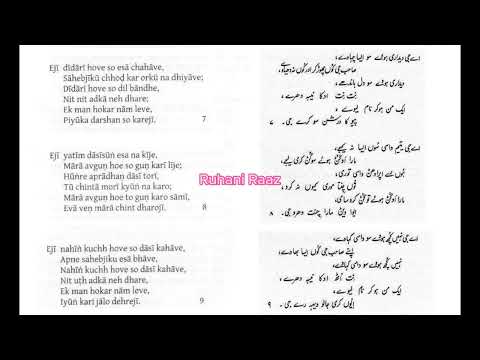 Ejī dīdārī hove so esā chahāve,
Sāhebjīkū chhoḍ kar orkū na dhiyāve;
Dīdārī hove so dil bāndhe,
Nit nit adkā neh dhare;
Ek man hokar nām leve,
Piyūka darshan so karejī. 7
Ejī yatīm dāsīsūṅ esa na kīje,
Mārā avguṇ hoe to guṇ karī lije;
Hūṅre aprādhaṇ dāsī torī,
Tū chintā morī kyūn na karo;
Mārā avguṇ hoe to guṇ karo sāmī,
Evā veṇ mārā chint dharojī. 8
Ejī nahīṅ kuchh hove so dāsī kahāve,
Apne sahebjiku esā bhāve,
Nahīṅ kuchh hove so dāsī kahāve,
Nit uṭh adkā neh dhare,
Ek man hokar nām leve,
Iyūṅ kari jālo dehrejī. 9
Ruhani Raaz
اے جی دیداری ہووے سو ایسا چہاوے،
صاحب جی کوں چھوڑ کر اور کوں نہ دھیاوے
دیداری ہووے سو دل باندھے،
نِت نِت ادکا نیہہ دھرے،
ایک من ہو کر نام لیوے،
پیو کا درشن سو کرے جی۔ ۷
اے جی یتیم داسی سُوں ایسا نہ کیجے،
تُوں چنتا موری کیوں نہ کرو،
۸
اے جی نہیں کچھ ہووے سو داسی کہاوے،
اپنے صاحب جی کوں ایسا بھاوے،
نہیں کچھ ہووے سو داسی کہاوے،
نِت اُٹھ ادکا نیہہ دھرے،
ایک من ہو کر نام لیوے،
۹